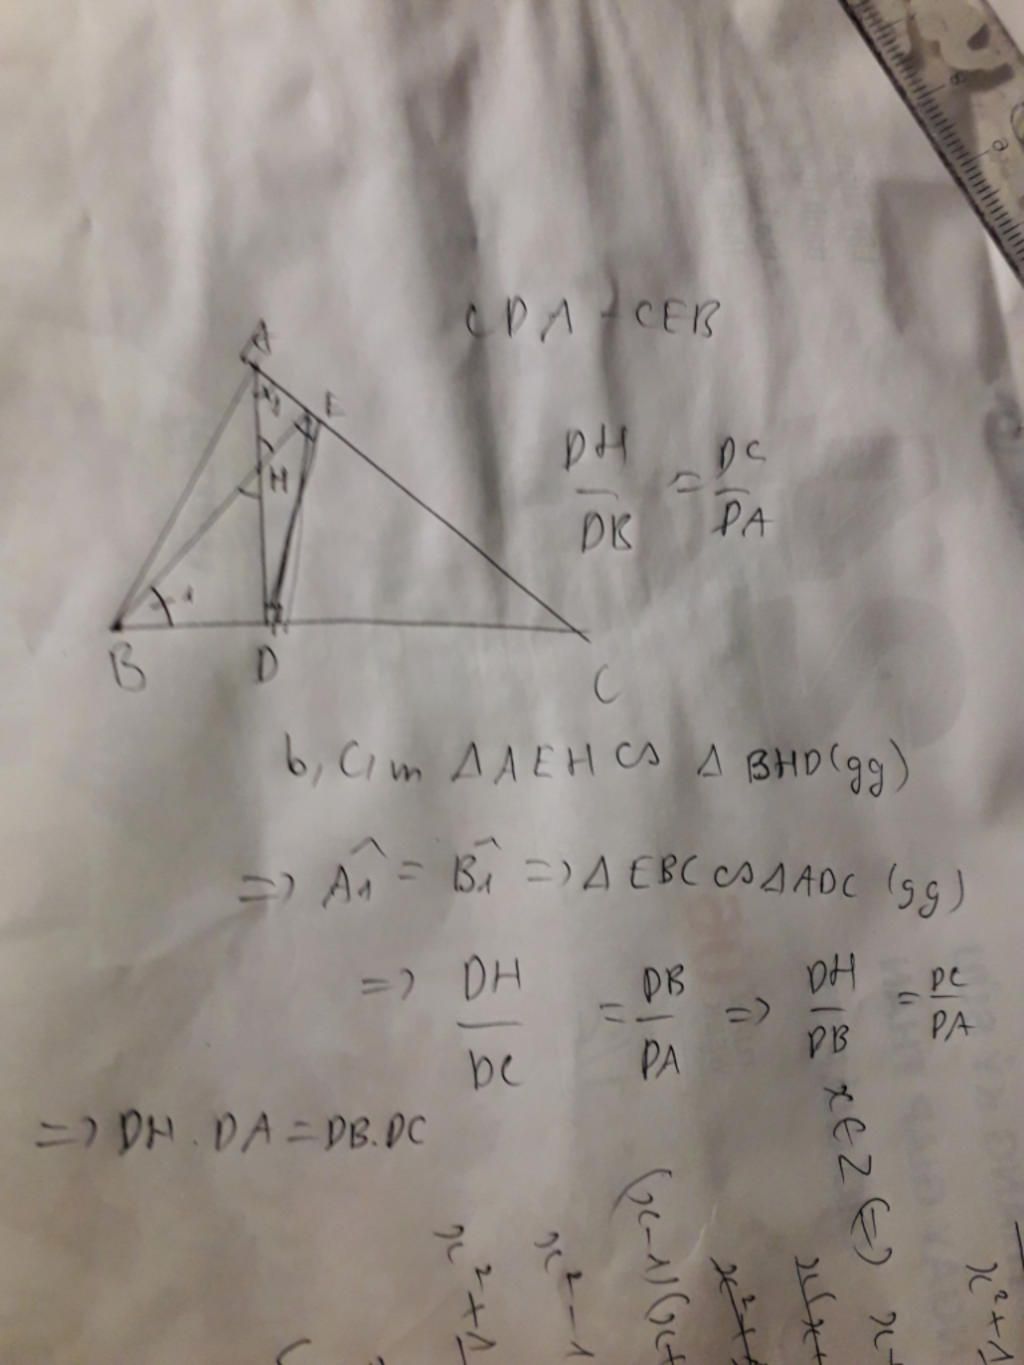 CDA CEB
A
E
H
B
D
C
DH/DB = DC/DA
b, C/m Δ AEH ∽ Δ BHD (gg)
=> Â1 = B̂1 => Δ EBC ∽ Δ ADC (gg)
=> DH/DC = DB/DA => DH/DB = DC/DA
=> DH . DA = DB.DC
x ∈ Z (=)
x² + 1
x² - 1
(x-1)(x+
x² + 1
x(x+
x² + 1